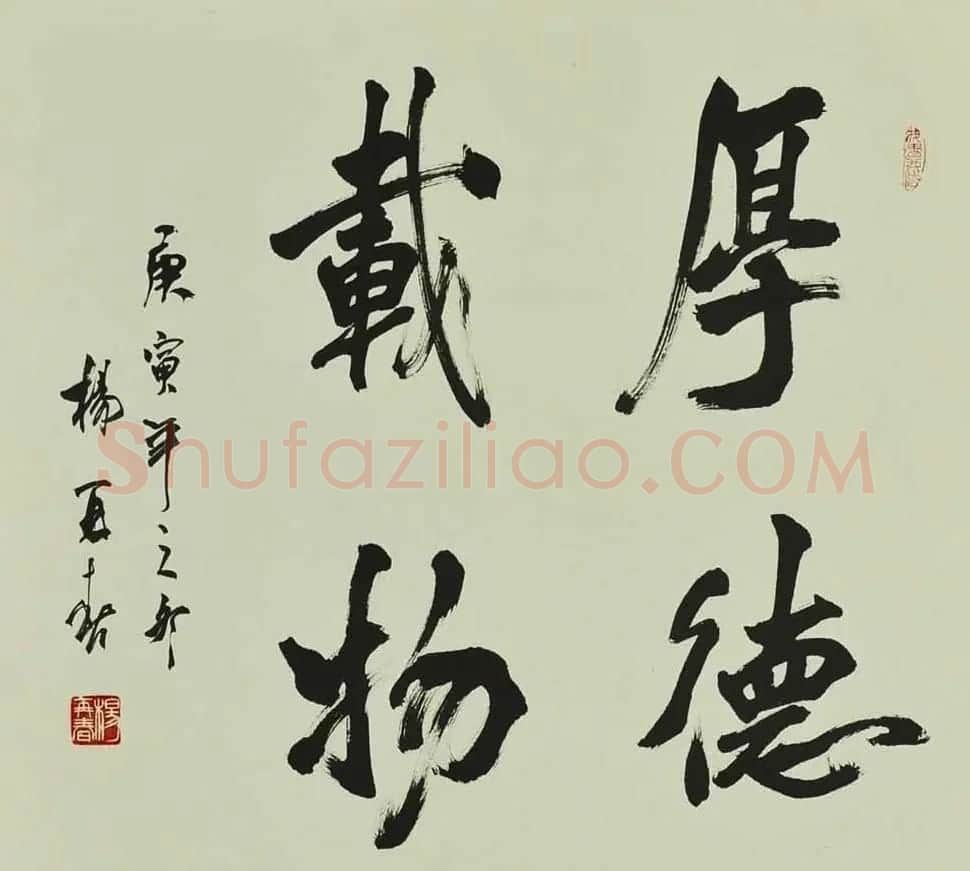 厚德
載物
庚寅年之即
楊再春
楊再春
Shufaziliao.COM